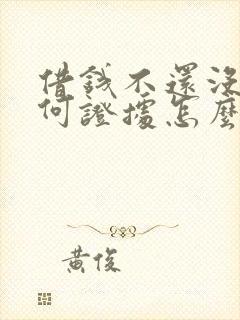 借錢不還沒
何證據怎麼
黃俊